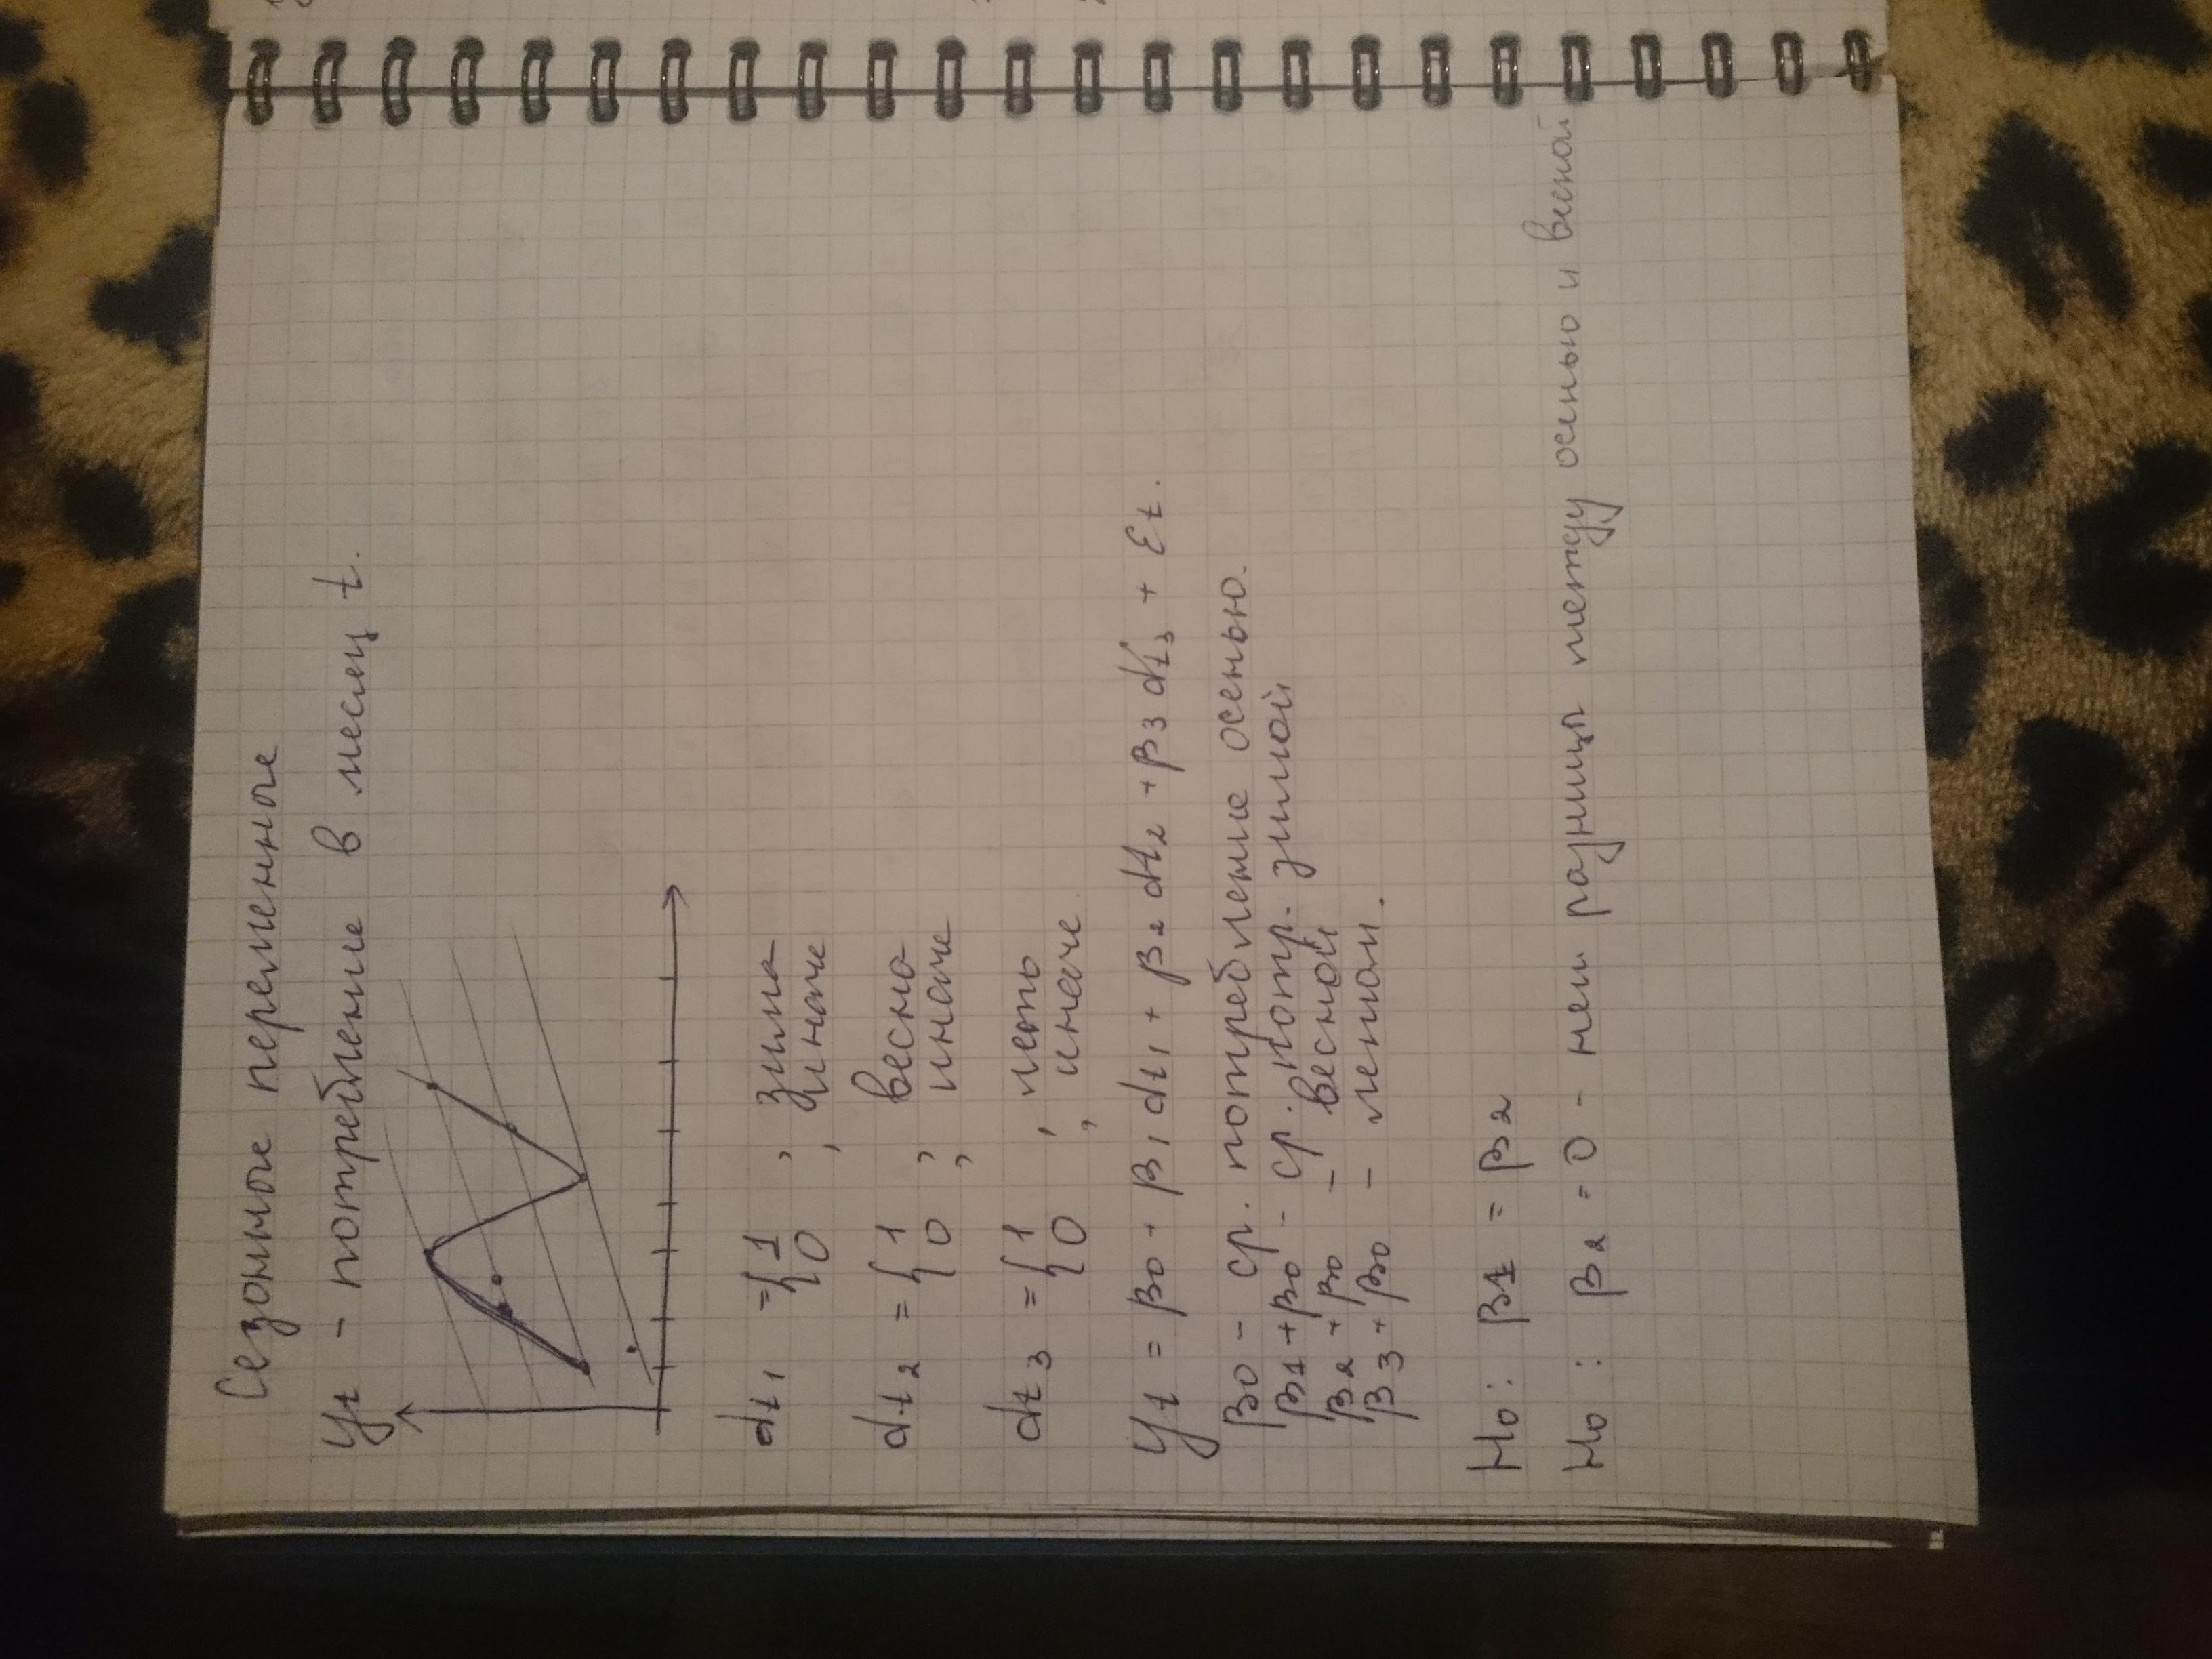 Сезонные переменные
yt - потребление в месяц t.
dt1 = { 1 , зима
0 , иначе
dt2 = { 1 , весна
0 , иначе
dt3 = { 1 , лето
0 , иначе
yt = β0 + β1 dt1 + β2 dt2 + β3 dt3 + εt.
β0 - ср. потребление осенью.
β1 + β0 - ср. потр. зимой
β2 + β0 - весной
β3 + β0 - летом.
H0: β1 = β2
H0: β2 = 0 - нет разницы между осенью и весной